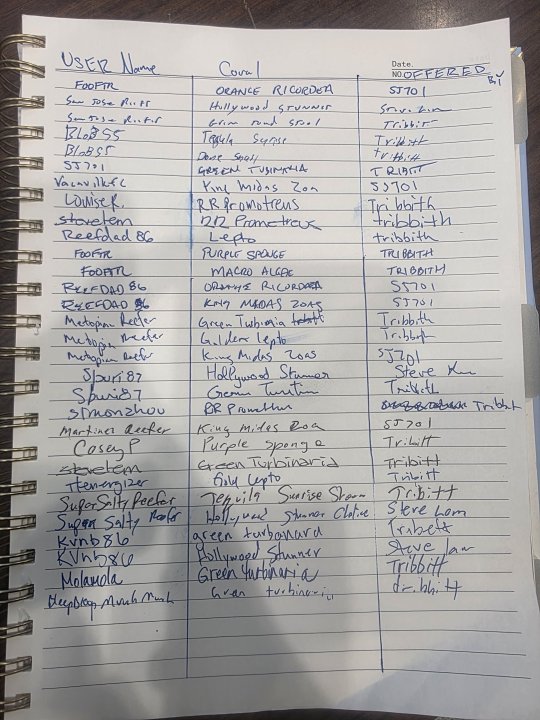 USER Name Coral Date.
NO. OFFERED BY
FOOFTR ORANGE RICORDEA SJ701
San Jose Reefs Hollywood STUNNER
San Jose Reefer Tribbitt
BloB55 Tribbitt
BloB55 tribbitt
SJ701 GREEN TUBINARIA TRIBIT
Vacavillefc King Midas Zoa SJ701
Louise R. RR Promotreus Tribbith
stevetem RR Prometreus tribbith
Reefdad 86 Lepto tribbith
FOOFTR PURPLE SPONGE TRIBBITH
FOOFTR MACRO ALGAE TRIBBITH
REEFDAD 86 ORANGE RICORDEA SJ701
REEFDAD 86 KING MADAS ZOAS SJ701
Metopian Reefer Green Turbinia Tribbith
Metopian Reefer Golden Lepto Tribbith
Metopian Reefer King Midas Zoas SJ701
Spuri87 Hollywood Stunner Steve
Spuri87 Tribbith
simonzhou RR Tribbitt
Martinez Reefer King Midas Zoa SJ701
Casey P Purple Sponge Tribitt
stevetem Green Turbinaria Tribitt
Themergizer Gold Lepto Tribitt
SuperSalty Reefer Tequila Sunrise Tribitt
Super Salty Reefer Hollywood Stunner Steve Lam
Kvnb86 green turbanard Tribett
Kvnb86 Hollywood Stunner Steve Lam
Molamola Green turbinaria Tribbitt
Green turbinaria